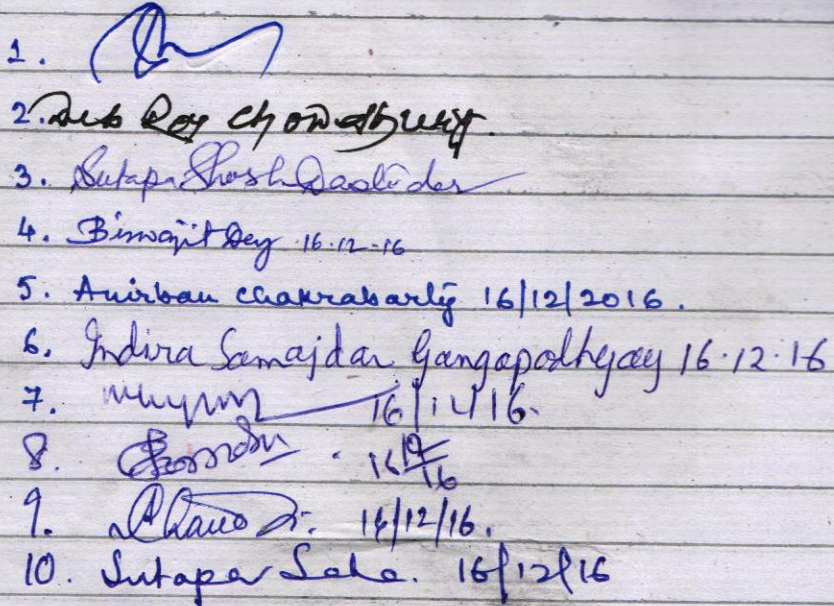 1.
2. Deb Roy Chowdhury.
3. Sutapa Ghosh Dastidar
4. Biswajit Dey 16.12.16
5. Anirban Chakrabarty 16/12/2016.
6. Indira Samajdar Gangapodhyay 16.12.16
7. 16/12/16.
8. 16/12/16
9. 16/12/16.
10. Sutapa Saha. 16/12/16